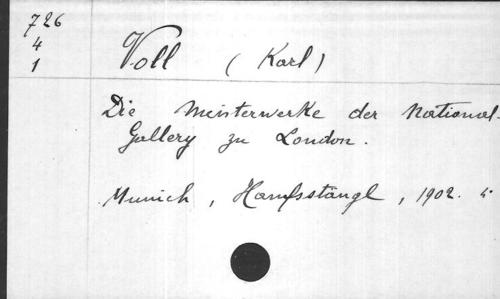 726
4
1
Voll (Karl)
Die Meisterwerke der National-
Gallery zu London.
Munich, Hanfsstängl, 1902. 4º